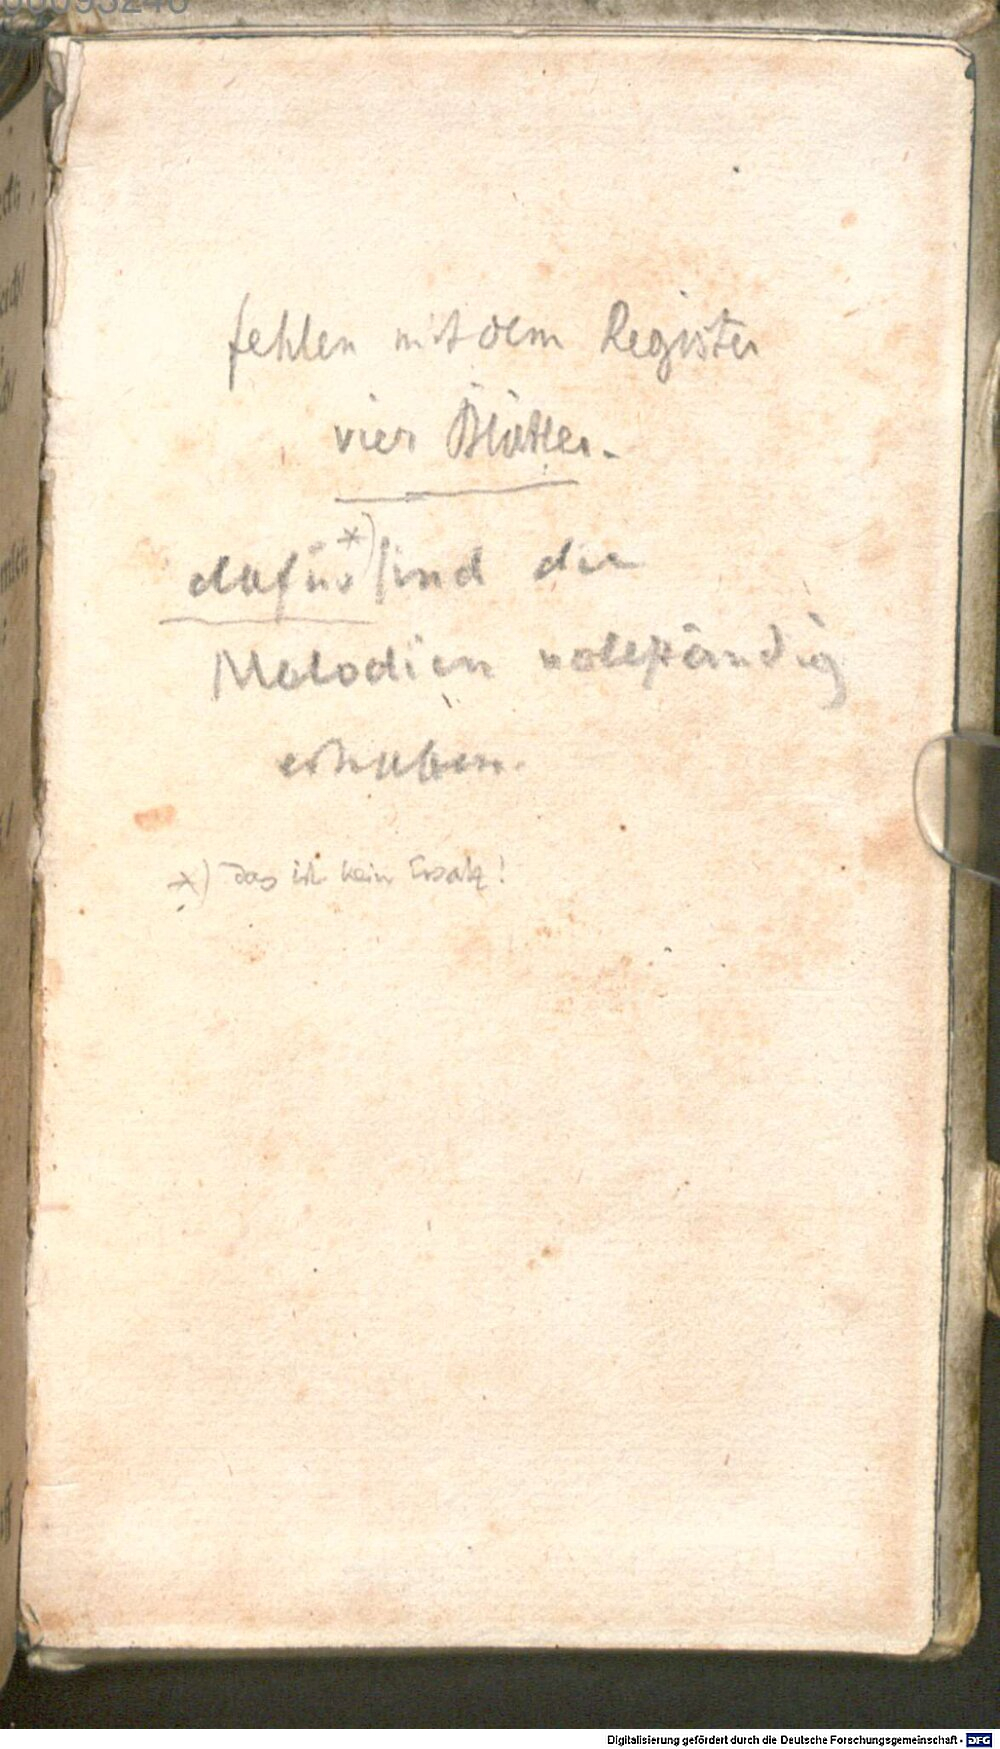 fehlen mit dem Register
vier Blätter.
dafür *) sind die
Melodien vollständig
erhalten.
*) Das ist kein Ersatz!
Digitalisierung gefördert durch die Deutsche Forschungsgemeinschaft - DFG